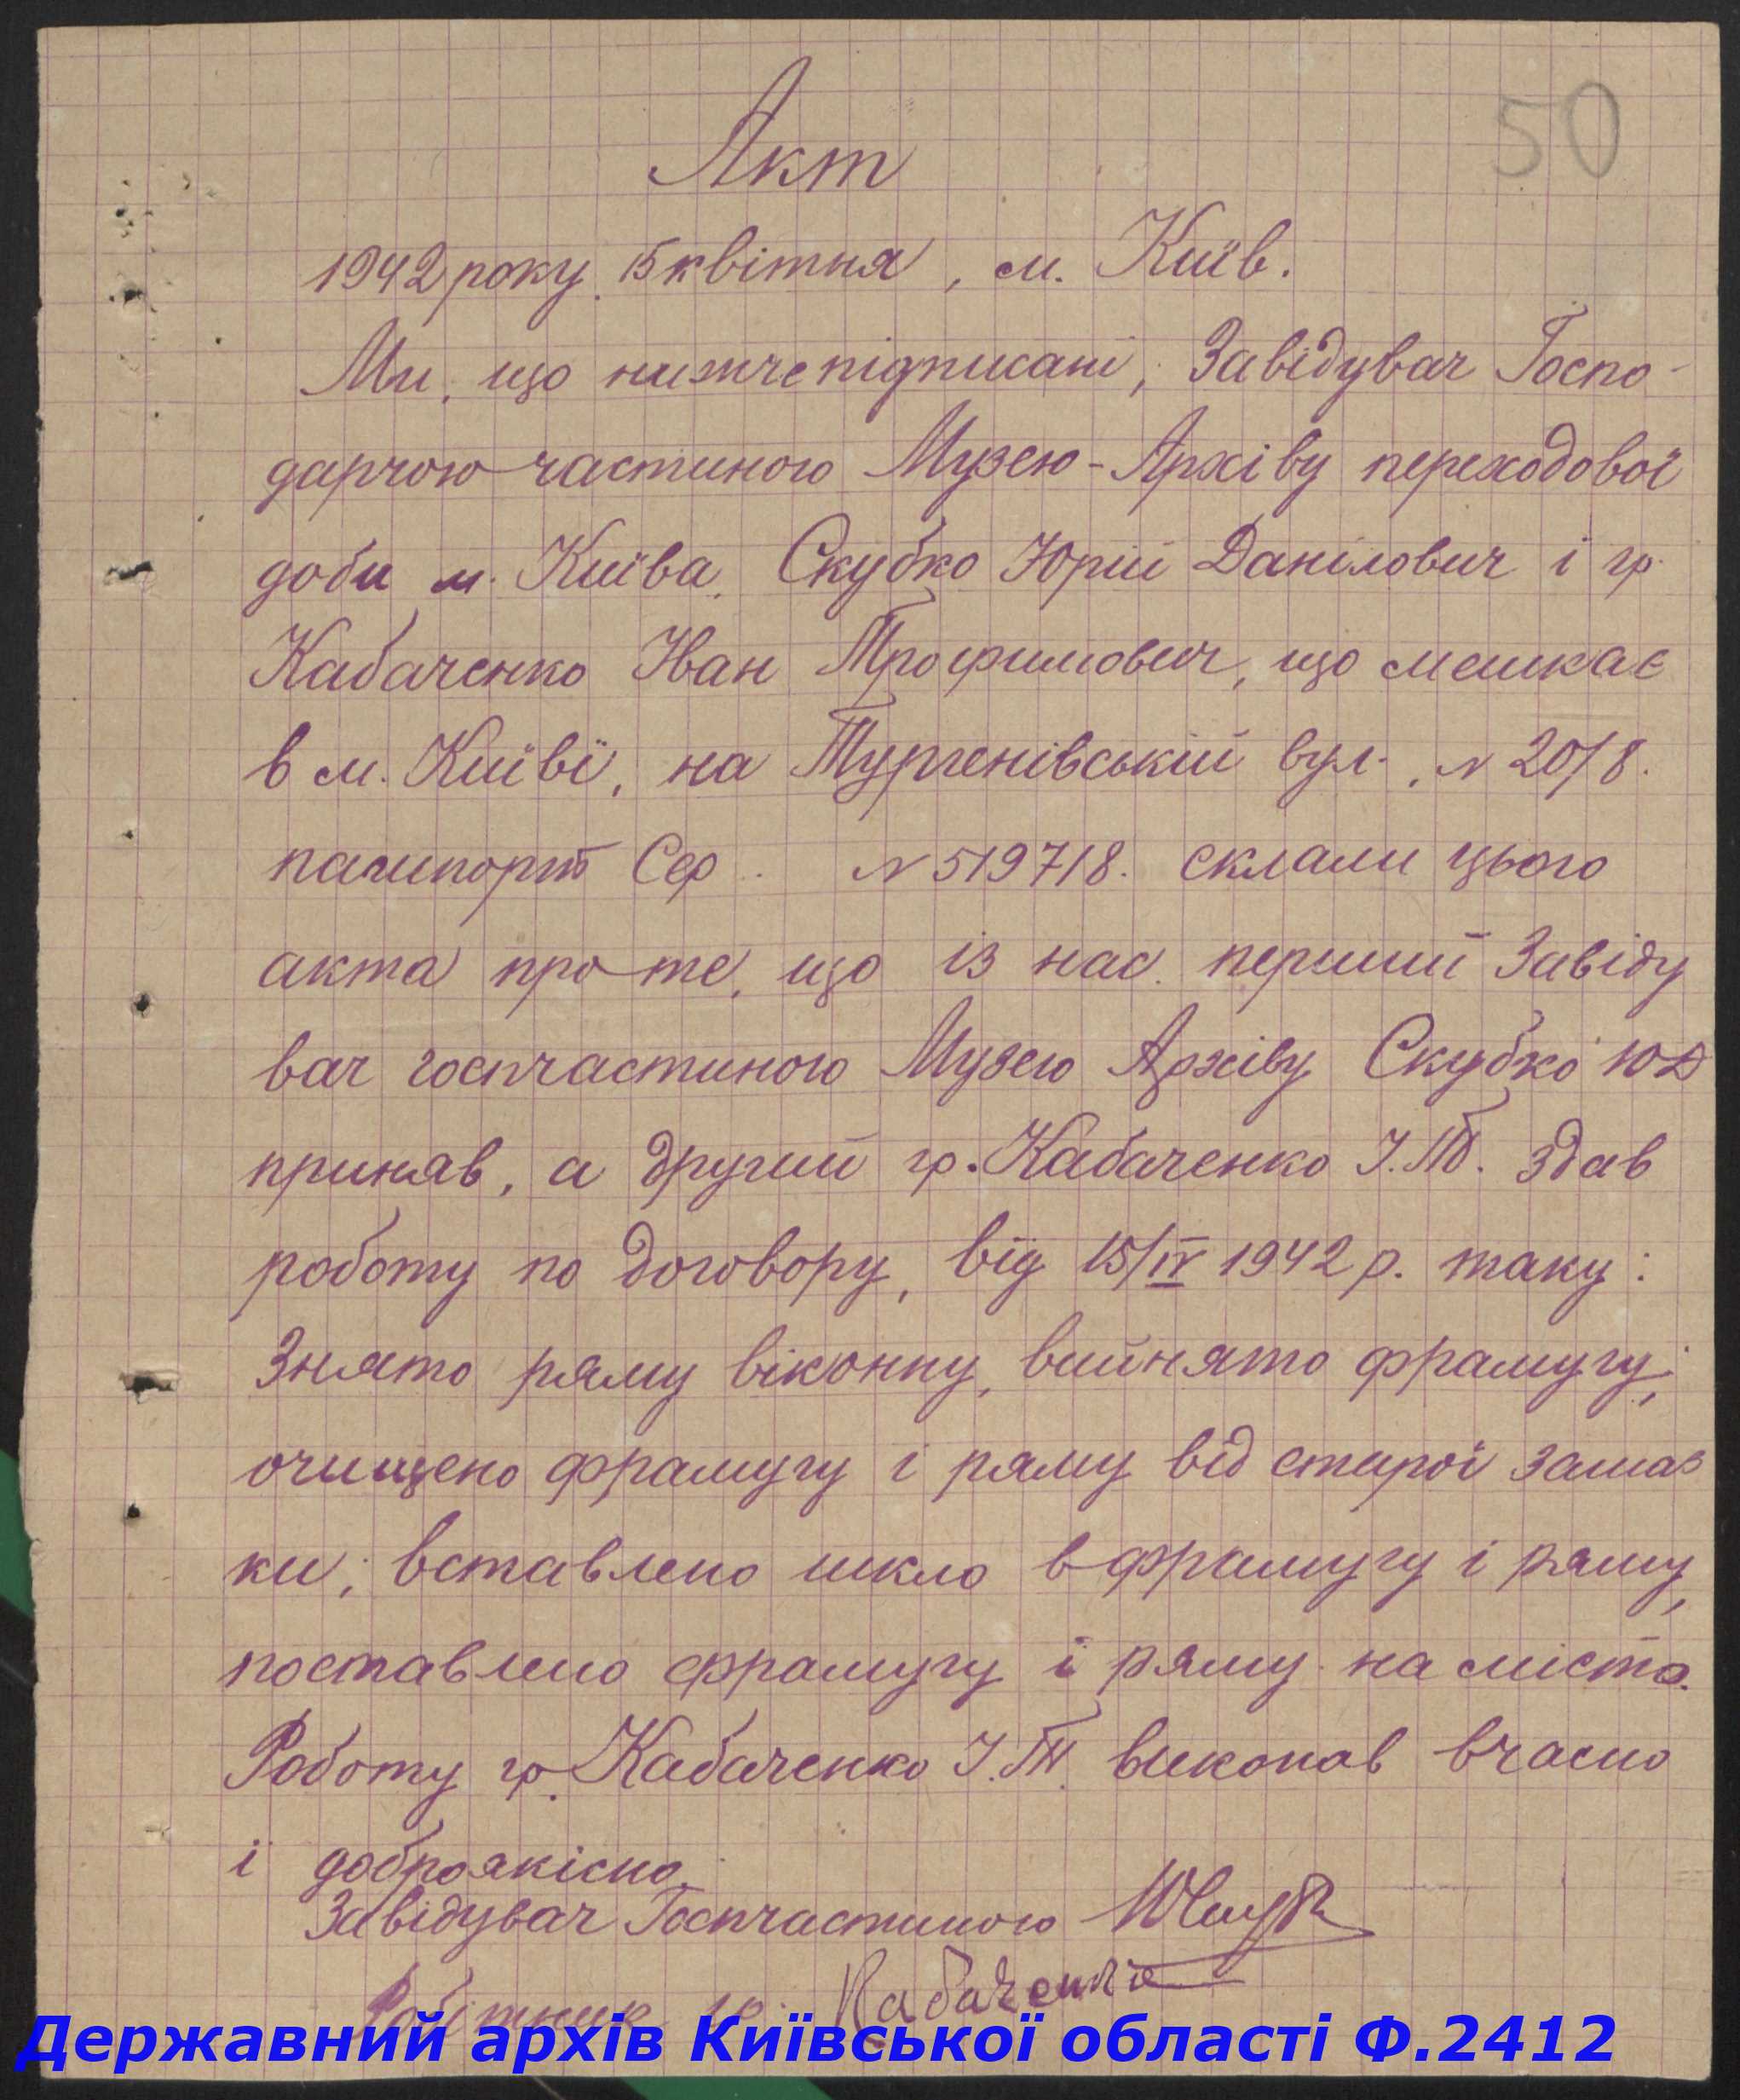 50
Акт
1942 року, 15 квітня, м. Київ.
Ми, що нижчепідписані, Завідувач Госпо-
дарчою частиною Музею-Архіву переходової
доби м. Київа, Скубко Юрій Данілович і гр.
Кабаченко Іван Трофимович, що мешкає
в м. Київі, на Тургенівській вул., N 20/8.
пашпорт Сер. N 519718. склали цього
акта про те, що із нас перший Завіду
вач госпчастиною Музею Архіву Скубко ЮД
приняв, а другий гр. Кабаченко І.Т. здав
роботу по договору, від 15/IV 1942 р. таку:
Знято раму віконну, вийнято фрамугу;
очищено фрамугу і раму від старої замаз
ки; вставлено шкло в фрамугу і раму,
поставлено фрамугу і раму на місто.
Роботу гр. Кабаченко І.Т. виконав вчасно
і доброякісно.
Завідувач Госпчастиною
Робітник гр. Кабаченко
Державний архів Київської області Ф.2412